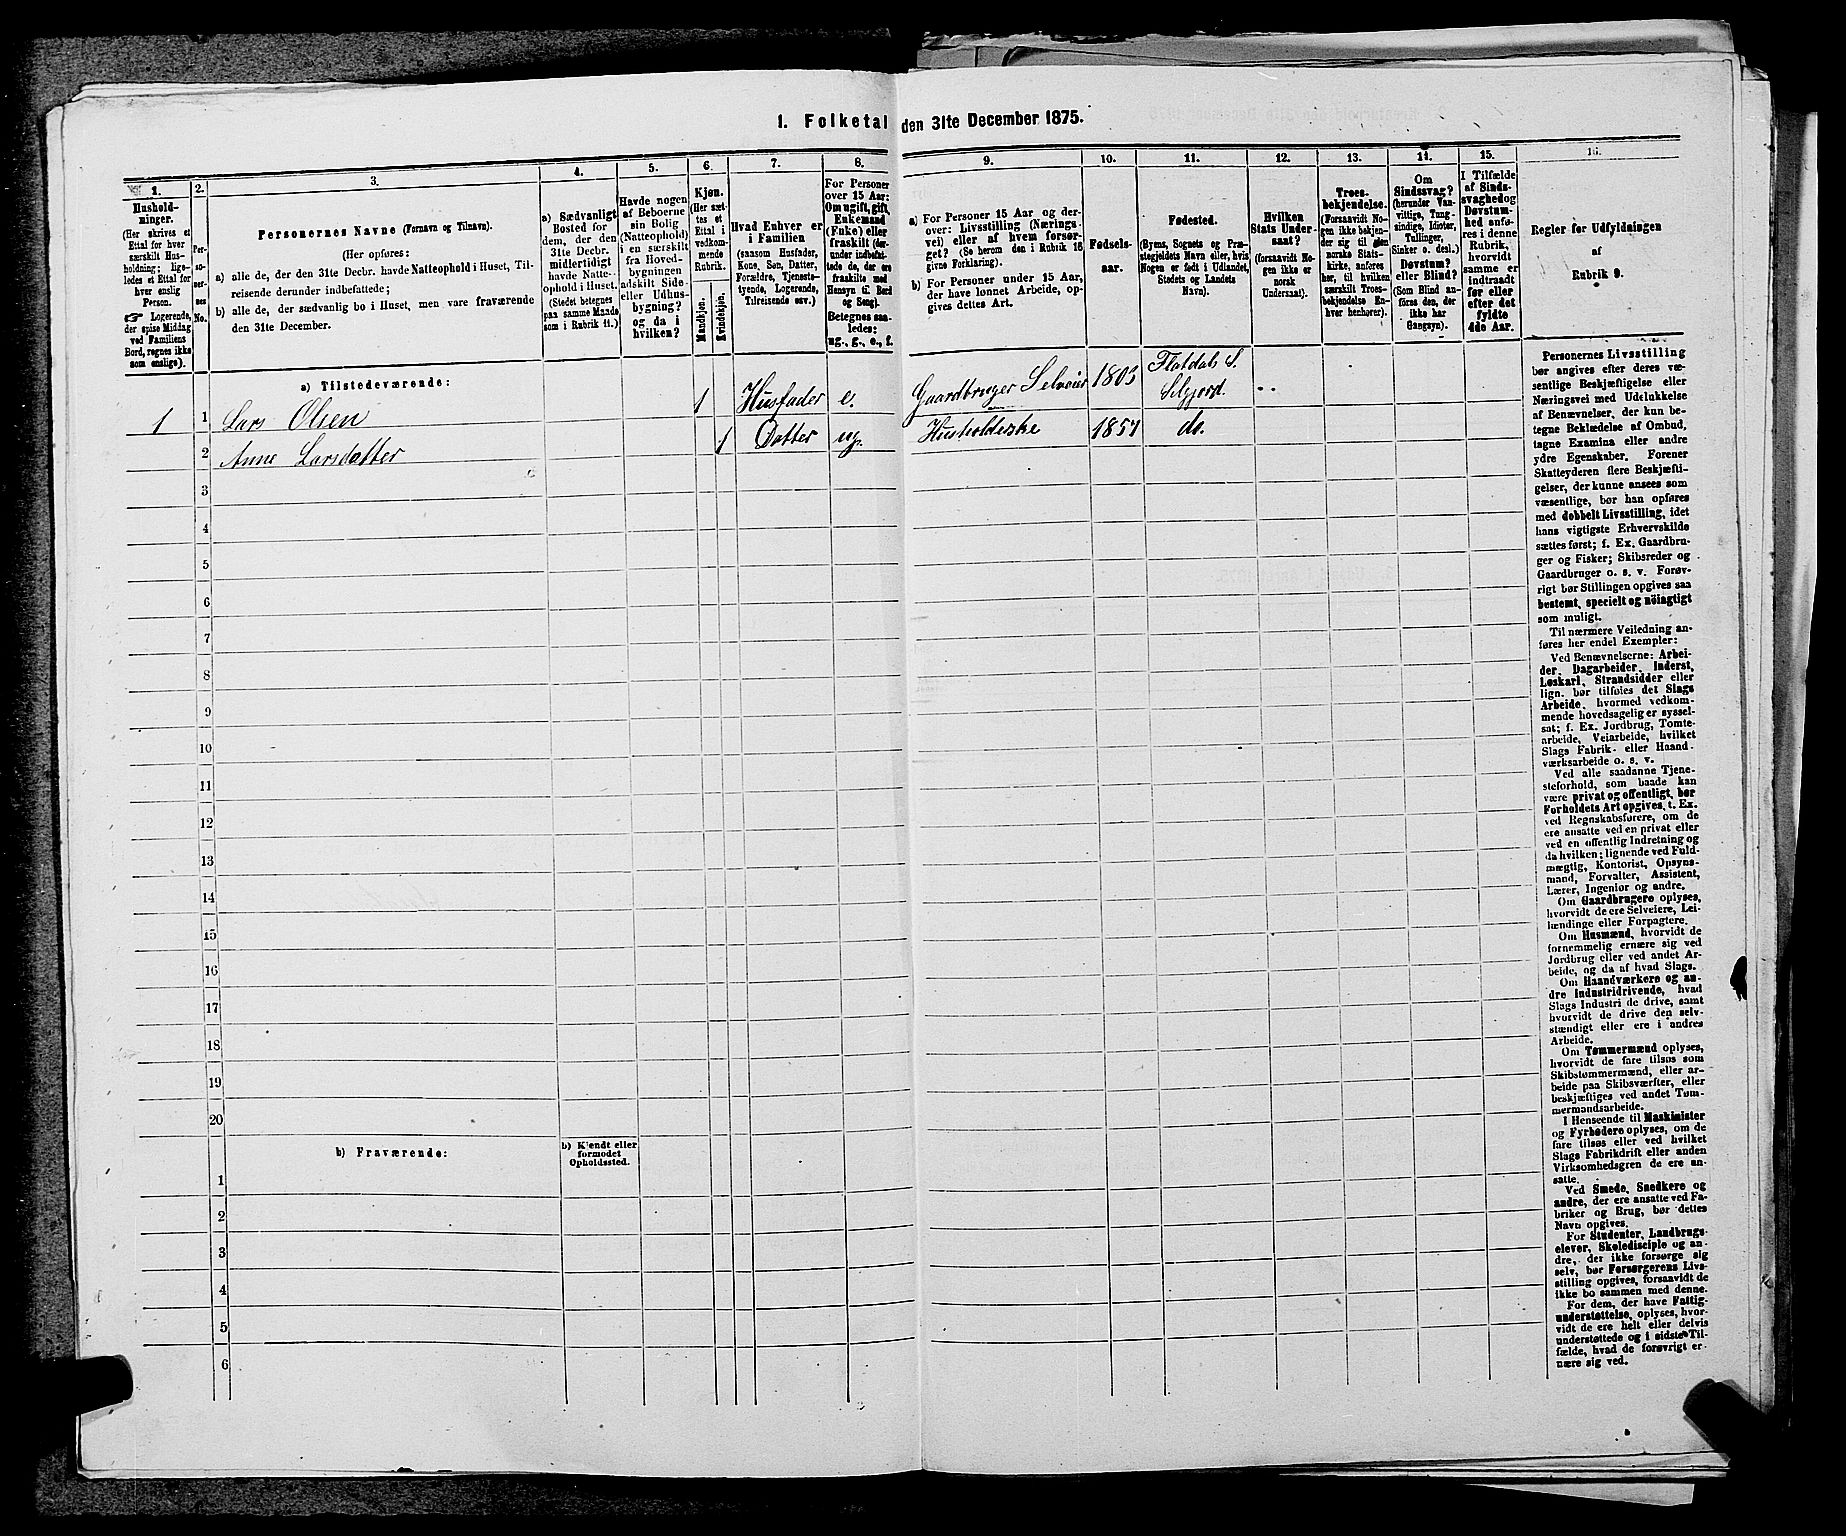 1. Folketal den 31te December 1875.
1.
2.
3.
4.
5.
6.
7.
8.
9.
10.
11.
12.
13.
14.
15.
16.
Hushold-
ninger.
(Her skrives et
Ettal for hver
særskilt Hus-
holdning; lige-
ledes et Ettal for
hver enslig
Person.
☞ Logerende,
der spise Middag
ved Familiens
Bord, regnes ikke
som enslige).
Per-
so-
ner-
nes
No.
Personernes Navne (Fornavn og Tilnavn).
(Her opføres:
a) alle de, der den 31te Decbr. havde Natteophold i Huset, Til-
reisende derunder indbefattede;
b) alle de, der sædvanlig bo i Huset, men vare fraværende
den 31te December.
a) Sædvanligt
Bosted for
dem, der den
31te Decbr.
midlertidigt
havde Natte-
ophold i Huset.
(Stedet betegnes
paa samme Maade
som i Rubrik 11.)
Havde nogen
af Beboerne
sin Bolig
(Natteophold)
i en særskilt
fra Hoved-
bygningen
adskilt Side-
eller Udhus-
bygning?
og da i
hvilken?
Kjøn.
(Her sæt-
tes et
Ettal i
vedkom-
mende
Rubrik.
Mandkjøn.
Kvindekjøn.
Hvad Enhver er
i Familien
(saasom Husfader,
Kone, Søn, Datter,
Forældre, Tjeneste-
tyende, Logerende,
Tilreisende osv.)
For Personer
over 15 Aar:
Om ugift, gift,
Enkemand
(Enke) eller
fraskilt (der-
under indbefat-
tede de, der ere
fraskilte med
Hensyn til Bord
og Seng).
Betegnes saa-
ledes:
ug., g., e., f.
a) For Personer 15 Aar og der-
over: Livsstilling (Nærings-
vei) eller af hvem forsør-
get? (Se herom den i Rubrik 16
givne Forklaring).
b) For Personer under 15 Aar,
der have lønnet Arbeide, op-
gives dettes Art.
Fødsels-
aar.
Fødested.
(Byens, Sognets og Præ-
stegjeldets Navn eller, hvis
Nogen er født i Udlandet,
Stedets og Landets
Navn).
Hvilken
Stats Under-
saat?
(forsaavidt No-
gen ikke er
norsk
Undersaat).
Troes-
bekjendelse.
(Forsaavidt No-
gen ikke bekjen-
der sig til den
norske Stats-
kirke, anføres
her, til hvilken
særskilt Troes-
bekjendelse En-
hver henhører).
Om
Sindssvag?
(herunder Van-
vittige, Tung-
sindige, Idioter,
Tullinger,
Sinker o. desl.)
Døvstum?
eller Blind?
(Som Blind an-
føres den, der
ikke har
Gangsyn).
I Tilfælde
af Sinds-
svaghed og
Døvstum-
hed anfø-
res i denne
Rubrik,
hvorvidt
samme er
indtraadt
før eller
efter det
fyldte
4de Aar.
Regler for Udfyldningen
af
Rubrik 9.
a) Tilstedeværende:
1 1 Lars Olsen 1 Husfader e. Gaardbruger Selveier 1803 Flatdals S.
Selgjord.
2 Anne Larsdatter 1 Datter ug. Husholderske 1857 do.
3
4
5
6
7
8
9
10
11
12
13
14
15
16
17
18
19
20
b) Fraværende:
b) Kjendt eller
formodet
Opholdssted.
1
2
3
4
5
6
Personernes Livsstilling
bør angives efter deres væ-
sentlige Beskjæftigelse eller
Næringsvei med Udelukkelse
af Benævnelser, der kun be-
tegne Beklædelse af Ombud,
tagne Examina eller andre
ydre Egenskaber. Forener
Skatteyderen flere Beskjæfti-
gelser, der kunne ansees som
væsentlige, bør han opføres
med dobbelt Livsstilling, idet
hans vigtigste Erhvervskilde
sættes først; f. Ex. Gaardbru-
ger og Fisker; Skibsreder og
Gaardbruger o. s. v. Forøv-
rigt bør Stillingen opgives saa
bestemt, specielt og nöiagtigt
som muligt.
Til nærmere Veiledning an-
føres her endel Exempler:
Ved Benævnelserne: Arbei-
der, Dagarbeider, Inderst,
Løskarl, Strandsidder eller
lign. bør tilføies det Slags
Arbeide, hvormed vedkom-
mende hovedsagelig er syssel-
sat; f. Ex. Jordbrug, Tomte-
arbeide, Veiarbeide, hvilket
Slags Fabrik- eller Haand-
værksarbeide o. s. v.
Ved alle saadanne Tjene-
steforhold, som baade kan
være privat og offentligt, bør
Forholdets Art opgives, t. Ex.
ved Regnskabsførere, om de
ere ansatte ved en privat eller
ved en offentlig Indretning og
da hvilken; lignende ved Fuld-
mægtig, Kontorist, Opsyns-
mand, Forvalter, Assistent,
Lærer, Ingeniør og andre.
Om Gaardbrugere oplyses,
hvorvidt de ere Selveiere, Lei-
lændinge eller Forpagtere.
Om Husmænd, hvorvidt de
fornemmelig ernære sig ved
Jordbrug eller ved andet Ar-
beide, og da af hvad Slags.
Om Haandværkere og an-
dre industridrivende, hvad
Slags Industri de drive, samt
hvorvidt de drive den selv-
stændigt eller ere i andres
Arbeide.
Om Tømmermænd oplyses,
hvorvidt de fare tilsøs som
Skibstømmermænd, eller ar-
beide paa Skibsværfter, eller
beskjæftiges ved andet Tøm-
mermandsarbeide.
I Henseende til Maskinister
og Fyrbødere oplyses, om de
fare tilsøs eller ved hvilket
Slags Fabrikdrift eller anden
Virksomhedsgren de ere an-
satte.
Ved Smede, Snedkere og
andre, der ere ansatte ved Fa-
briker og Brug, bør dettes
Navn opgives.
For Studenter, Landbrugs-
elever, Skoledisciple og an-
dre, der ikke forsørge sig
selv, bør Forsørgerens Livs-
stilling opgives, forsaavidt de
ikke bo sammen med denne.
For dem, der have Fattig-
understøttelse, oplyses, hvor-
vidt de ere helt eller delvis
understøttede og i sidste Til-
fælde, hvad de forøvrigt er-
nære sig ved.